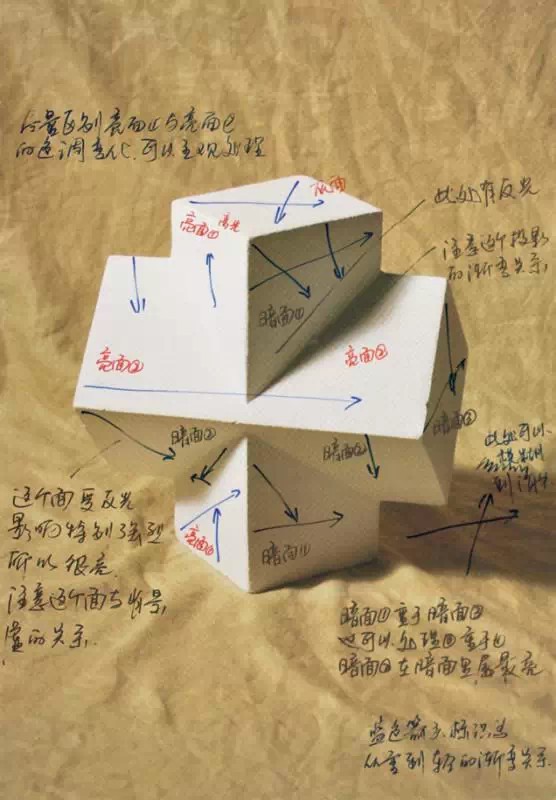 尽量区别亮面①与亮面②
的色调变化.可以主观处理
灰面
亮面① 高光
此处有反光
注意这个投影
的渐变关系.
暗面①
亮面②
亮面②
暗面③
暗面②
暗面②
此处可以
模糊
这个面受反光
影响特别强烈
所以很亮.
注意这个面与背景
的关系.
亮面①
暗面①
暗面①重于暗面②
也可以处理②重于①
暗面③在暗面里属最亮
蓝色箭头标识为
从重到轻的渐变关系.